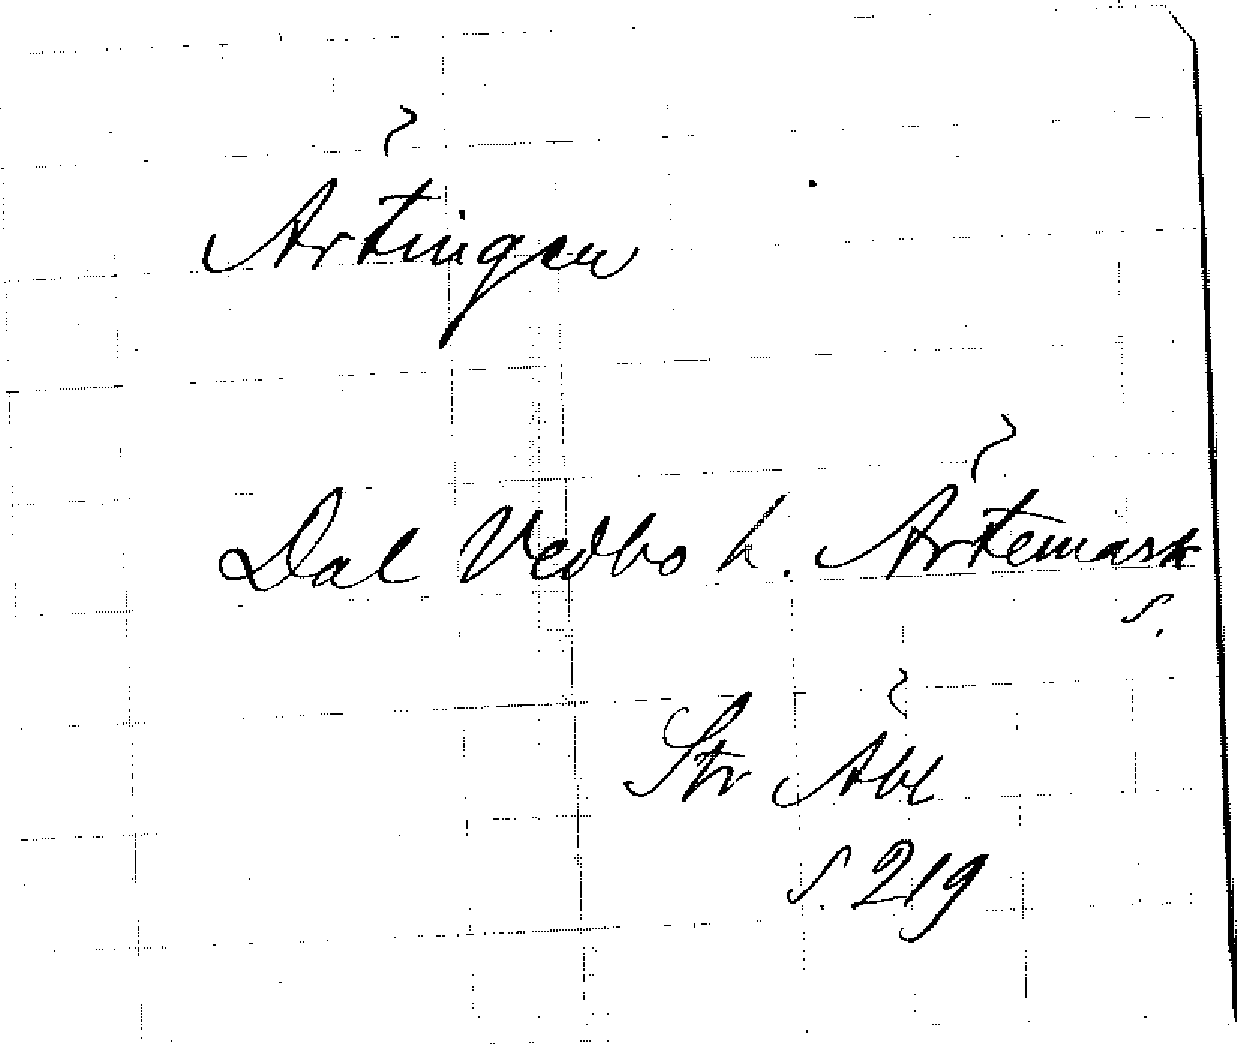 Ärtingen
Dal Vedbo h. Ärtemark
s.
Str Äbl
s. 219